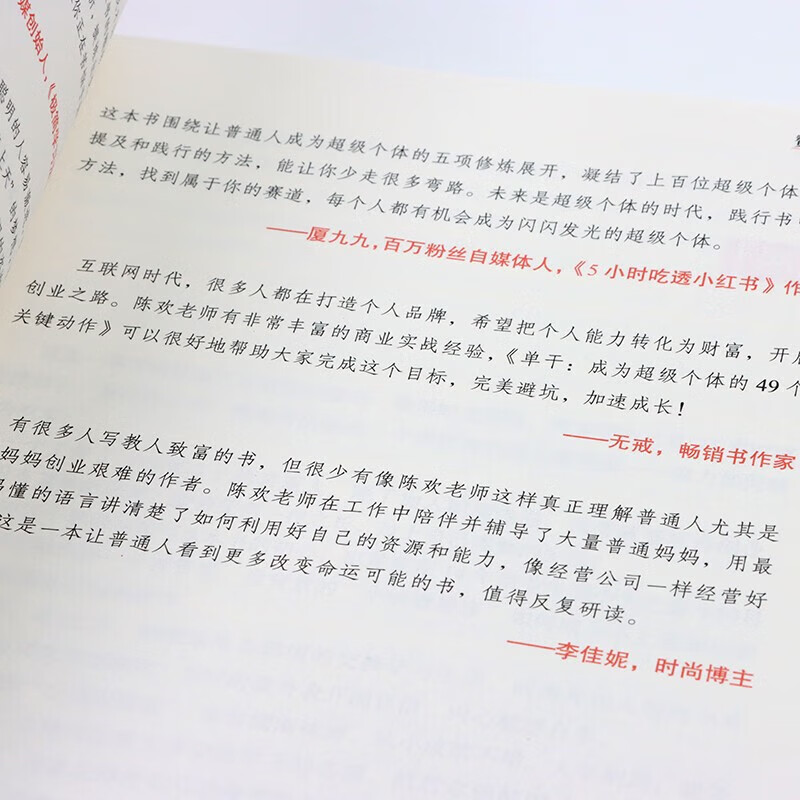 这本书围绕让普通人成为超级个体的五项修炼展开，凝结了上百位超级个体
提及和践行的方法，能让你少走很多弯路。未来是超级个体的时代，践行书
方法，找到属于你的赛道，每个人都有机会成为闪闪发光的超级个体。
——厦九九，百万粉丝自媒体人，《5小时吃透小红书》作
互联网时代，很多人都在打造个人品牌，希望把个人能力转化为财富，开
创业之路。陈欢老师有非常丰富的商业实战经验，《单干：成为超级个体的49个
关键动作》可以很好地帮助大家完成这个目标，完美避坑，加速成长！
——无戒，畅销书作家
有很多人写教人致富的书，但很少有像陈欢老师这样真正理解普通人尤其是
妈妈创业艰难的作者。陈欢老师在工作中陪伴并辅导了大量普通妈妈，用最
懂的语言讲清楚了如何利用好自己的资源和能力，像经营公司一样经营好
这是一本让普通人看到更多改变命运可能的书，值得反复研读。
——李佳妮，时尚博主